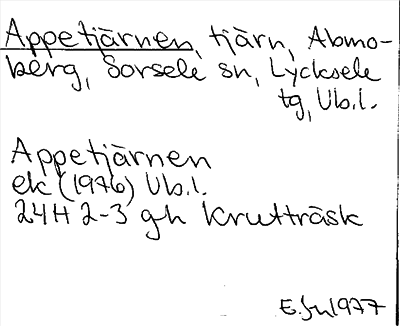 Appetjärnen, tjärn, Abmo-
berg, Sorsele sn, Lycksele
tg, Vb.l.
Appetjärnen
ek (1976) Vb.l.
24H 2-3 gh Krutträsk
E.Jn 1977